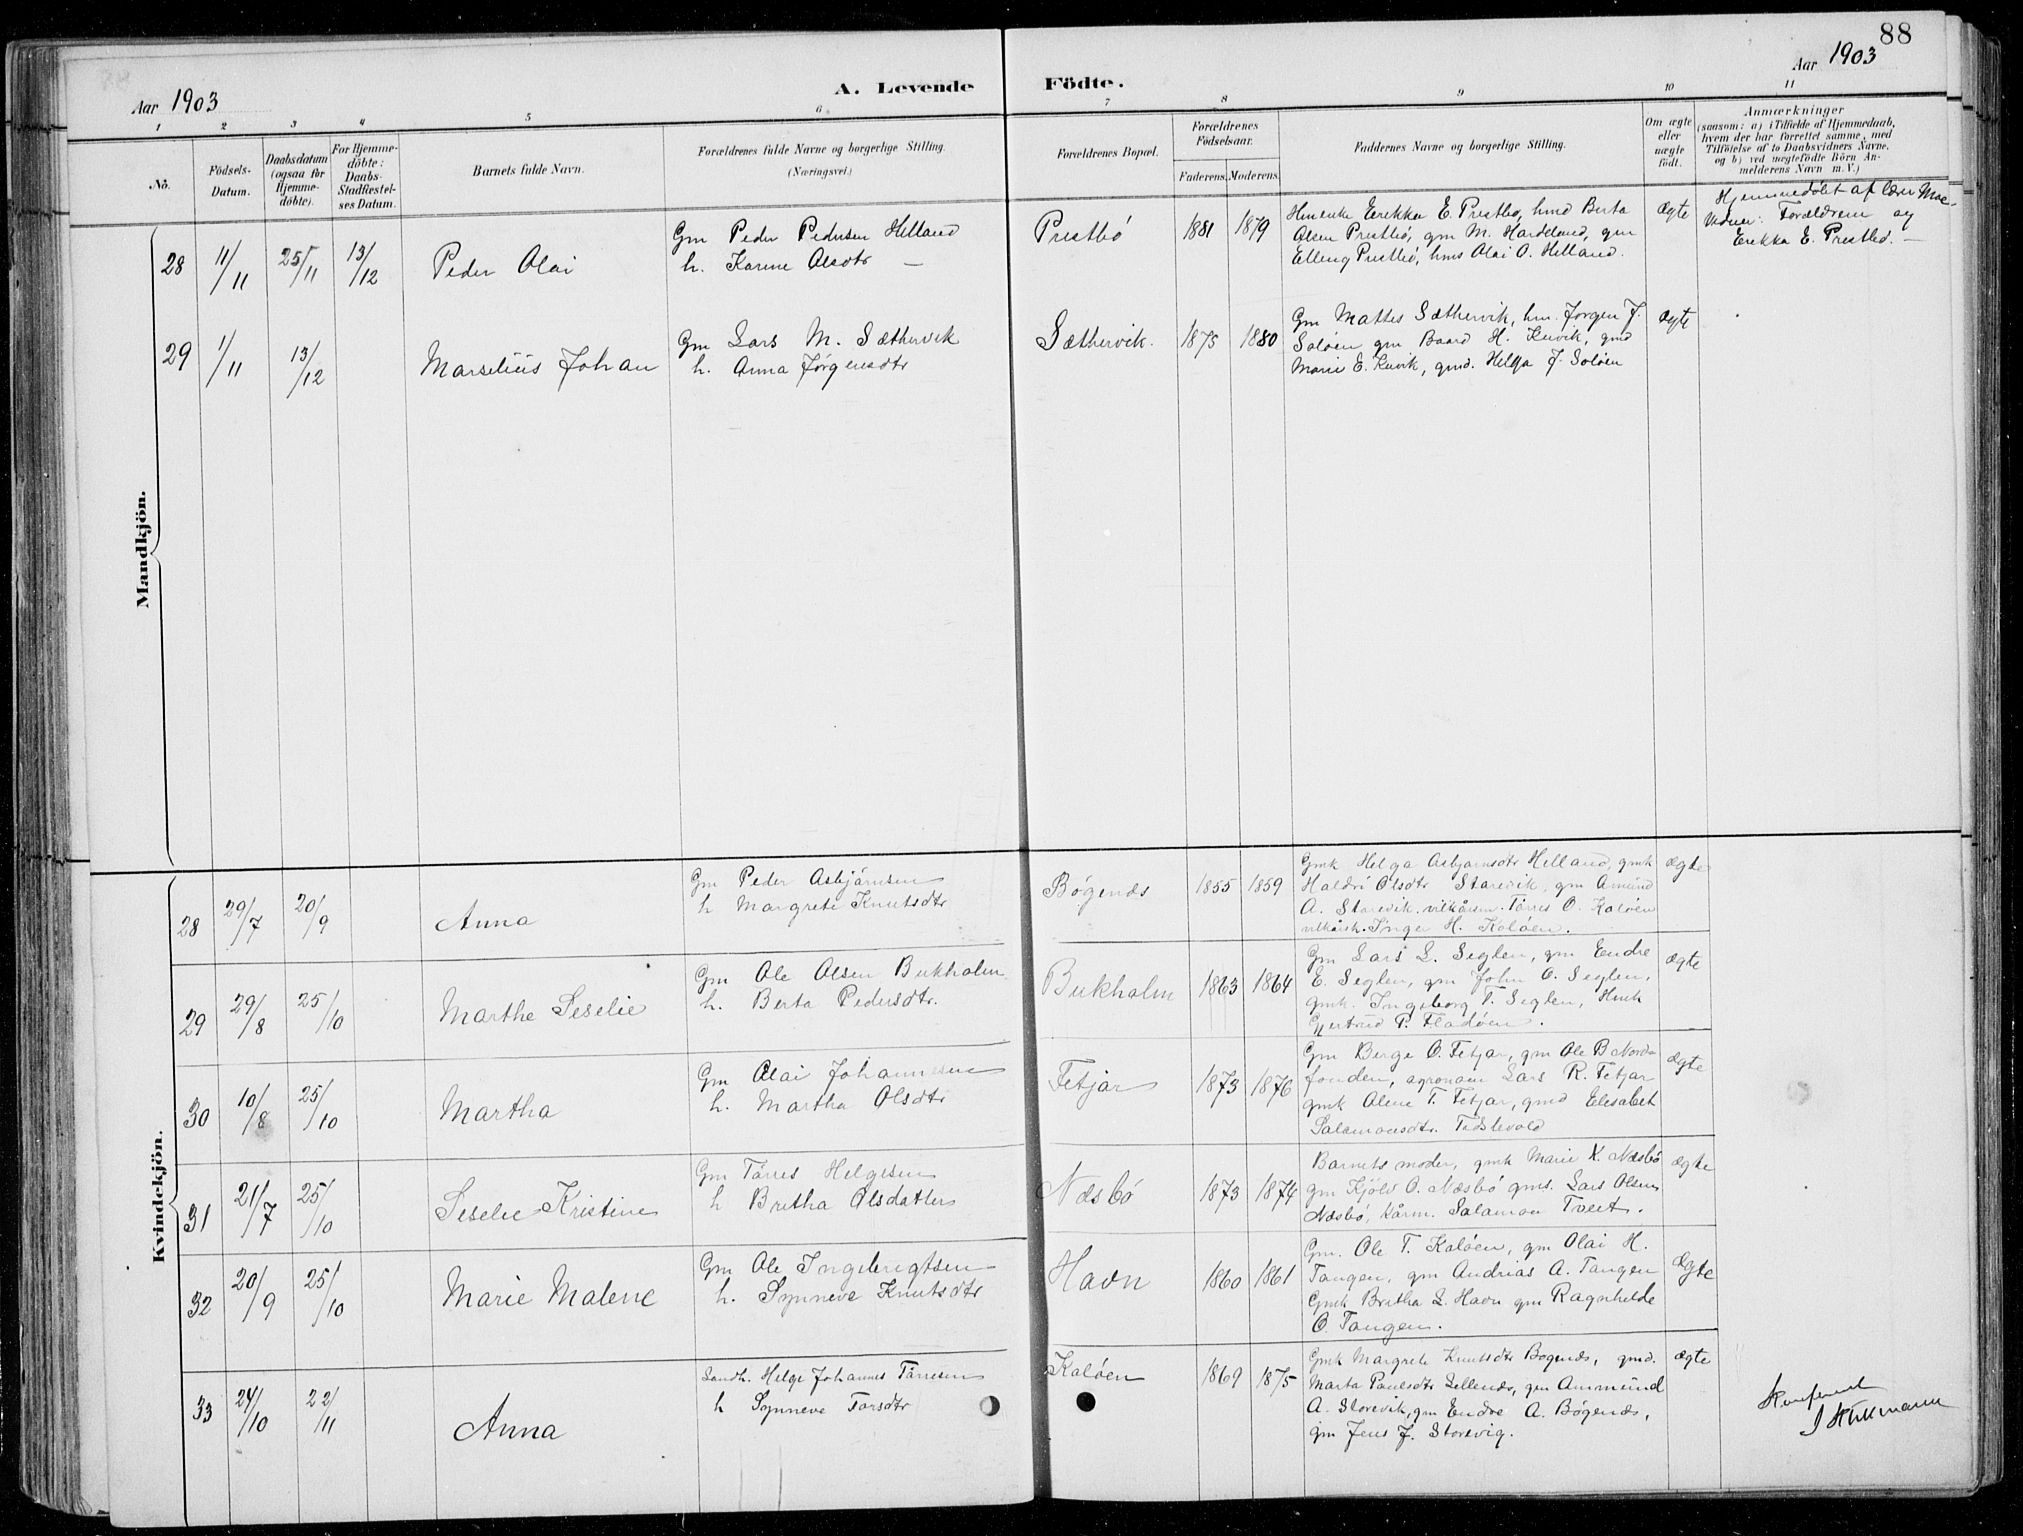 88
Aar 1903
A. Levende Födte.
Aar 1903
1 2 3 4 5 6 7 8 9 10 11
No.
Födsels-
Datum.
Daabsdatum
(ogsaa for
Hjemme-
döbte).
For Hjemme-
döbte:
Daabs-
Stadfæstel-
ses Datum.
Barnets fulde Navn.
Forældrenes fulde Navne og borgerlige Stilling.
(Næringsvei.)
Forældrenes Bopæl.
Forældrenes
Födselsaar.
Faderens. Moderens.
Faddernes Navne og borgerlige Stilling.
Om ægte
eller
uægte
födt.
Anmærkninger
(saasom: a) i Tilfælde af Hjemmedaab,
hvem der har forrettet samme, med
Tilföielse af to Daabsvidners Navne,
og b) ved uægtefödte Börn An-
melderens Navn m. V.)
Mandkjön.
28 11/11 25/11 13/12 Peder Olai
Gm Peder Pedersen Helland
h. Karine Olsdtr —
Prestbö 1881 1879
Erekka E. Prestbö, hmd Berta
Olsen Prestbö, gm M. Hardeland, gm
Elling Prestbö, hms Olai O. Helland.
Ægte
Hjemmedöbt af lærer Moe
Vidner: Forældrene og
Erekka E. Prestbö. —
29 1/11 13/12 Marselius Johan
Gm Lars M. Sæthervik
h. Anna Jörgensdtr
Sæthervik. 1875 1880
Gm Mattes Sæthervik, hm. Jörgen J.
Solöen gm Baard H. Kuvik, gmd
Marie E. Kuvik, gmd. Helga J. Solöen
ægte
Kvindekjön.
28 29/7 20/9 Anna
Gm Peder Asbjörnsen
h Margrete Knutsdtr
Bögenæs 1855 1859
Gmk Helga Asbjørnsdtr Helland, gmk
Haldri Olsdtr Storevik, gm Amund
A. Storevik. vilkårsm. Törres O. Kalöen
vilkårsk. Inger H. Kalöen.
ægte
29 29/8 25/10 Marthe Seselie
Gm Ole Olsen Bukholm
h. Berta Pedersdtr.
Bukholm 1863 1864
Gm Lars L. Seglen, gm Endre
E. Seglen, gm John O. Seglen,
gmk. Ingeborg T. Seglen, Hmk
Gjertrud P. Fladöen.
ægte
30 10/8 25/10 Martha
Gm Olai Johannesen
h. Martha Olsdtr
Fetjar 1873 1876
Gm Berge O. Fetjar, gm Ole B Nord-
fonden, agronom Lars R. Fetjar
gmk Alene T. Fetjar, gmd Elesabet
Salamonsdtr. Tidslevold
ægte
31 21/7 25/10 Seselie Kristine
Gm Törres Helgesen
h Bretha Olsdatter
Næsbö 1873 1874
Barnets moder, gmk Marie K. Næsbö
gm Kjölv O. Næsbö gms. Lars Olsen
Næsbö, kårm. Salamon Tveit.
ægte
32 20/9 25/10 Marie Malene
Gm Ole Ingebrigtsen
h. Synneve Knutsdtr
Havn 1860 1861
Gm. Ole T. Kalöen, gm Olai H.
Tangen, gm Andrias A. Tangen
Gmk Bretha L. Havn gm Ragnhilde
O. Tangen.
Ægte
33 24/10 22/11 Anna
Sandh. Helge Johannes Törresen
h Synneve Torsdtr
Kalöen 1869 1875
Gmk Margrete Knutsdtr Bogenæs, gmd.
Marta Paulsdtr Lillenæs, gm Ammund
A. Storevik, gm Endre A. Bögenæs,
gm Jens J. Storevig.
ægte
Konfereret